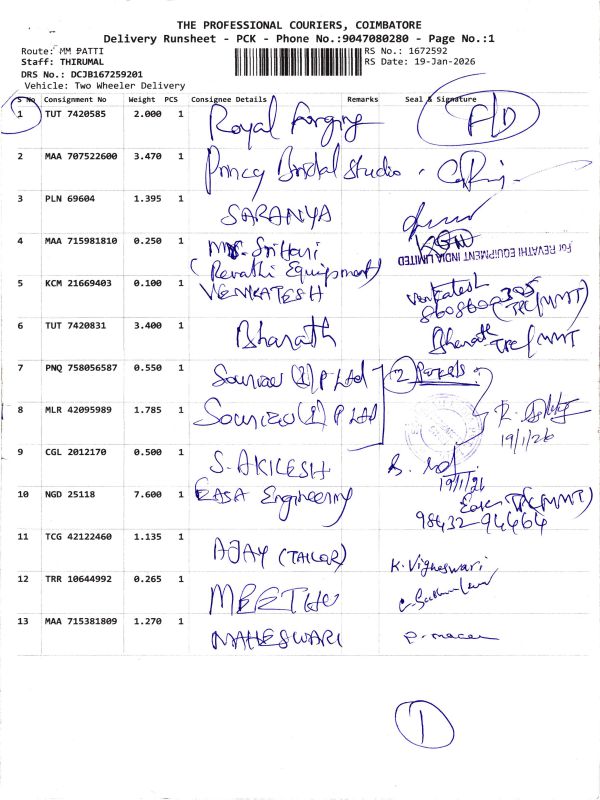 THE PROFESSIONAL COURIERS, COIMBATORE
Delivery Runsheet - PCK - Phone No.:9047080280 - Page No.:1
Route: MM PATTI RS No.: 1672592
Staff: THIRUMAL RS Date: 19-Jan-2026
DRS No.: DCJB167259201
Vehicle: Two Wheeler Delivery
S No Consignment No Weight PCS Consignee Details Remarks Seal & Signature
1 TUT 7420585 2.000 1 Royal Forging F/D
2 MAA 707522600 3.470 1 Princy Bridal Studio
3 PLN 69604 1.395 1 SARANYA
4 MAA 715981810 0.250 1 Mr. Srihari
(Revathi Equipment) For REVATHI EQUIPMENT INDIA LIMITED
5 KCM 21669403 0.100 1 VENKATESH Venkatesh
(TPC/MMT)
6 TUT 7420831 3.400 1 Bharath Bharath TPC/MMT
7 PNQ 758056587 0.550 1 (I) P Ltd 2 Parcels
8 MLR 42095989 1.785 1 (I) P Ltd
19/1/26
9 CGL 2012170 0.500 1 S. AKILESH
19/1/26
10 NGD 25118 7.600 1 EASA Engineering TPC(MMT)
98432-94464
11 TCG 42122460 1.135 1 AJAY (TAILOR) K. Vigneswari
12 TRR 10644992 0.265 1 MEETHU
13 MAA 715381809 1.270 1 MAHESWARI
1